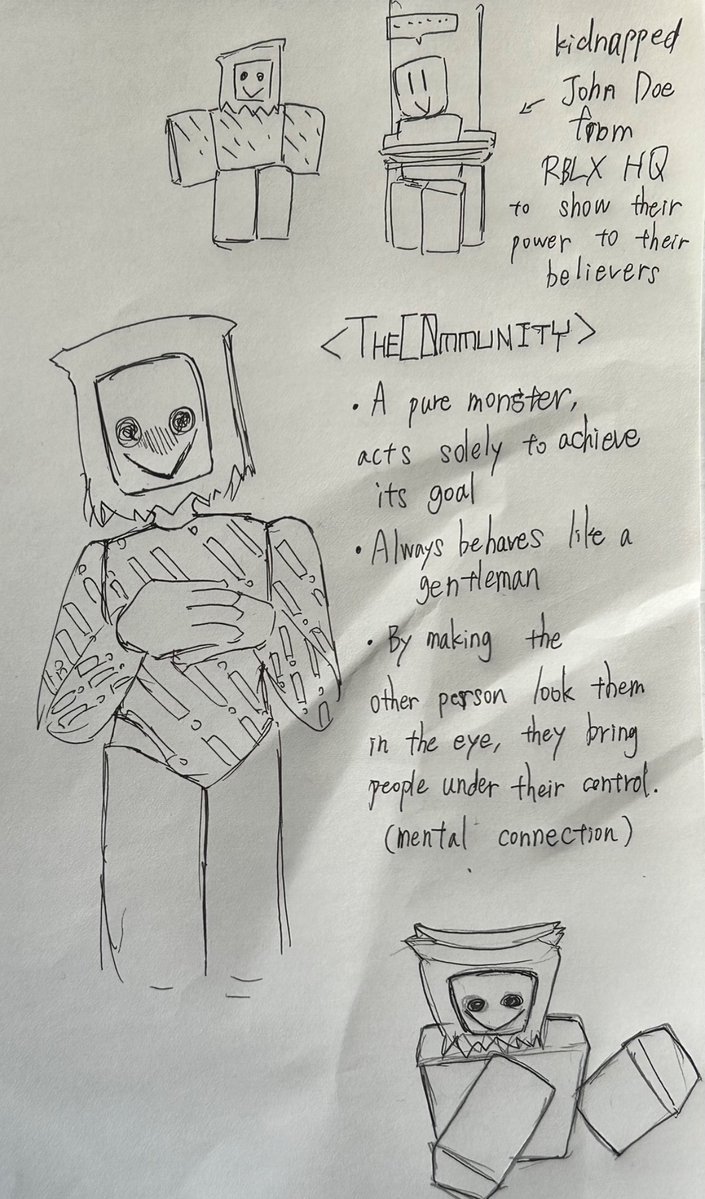 kidnapped
John Doe
from
RBLX HQ
to show their
power to their
believers
<THECOMMUNITY>
• A pure monster,
acts solely to achieve
its goal
• Always behaves like a
gentleman
• By making the
other person look them
in the eye, they bring
people under their control.
(mental connection)